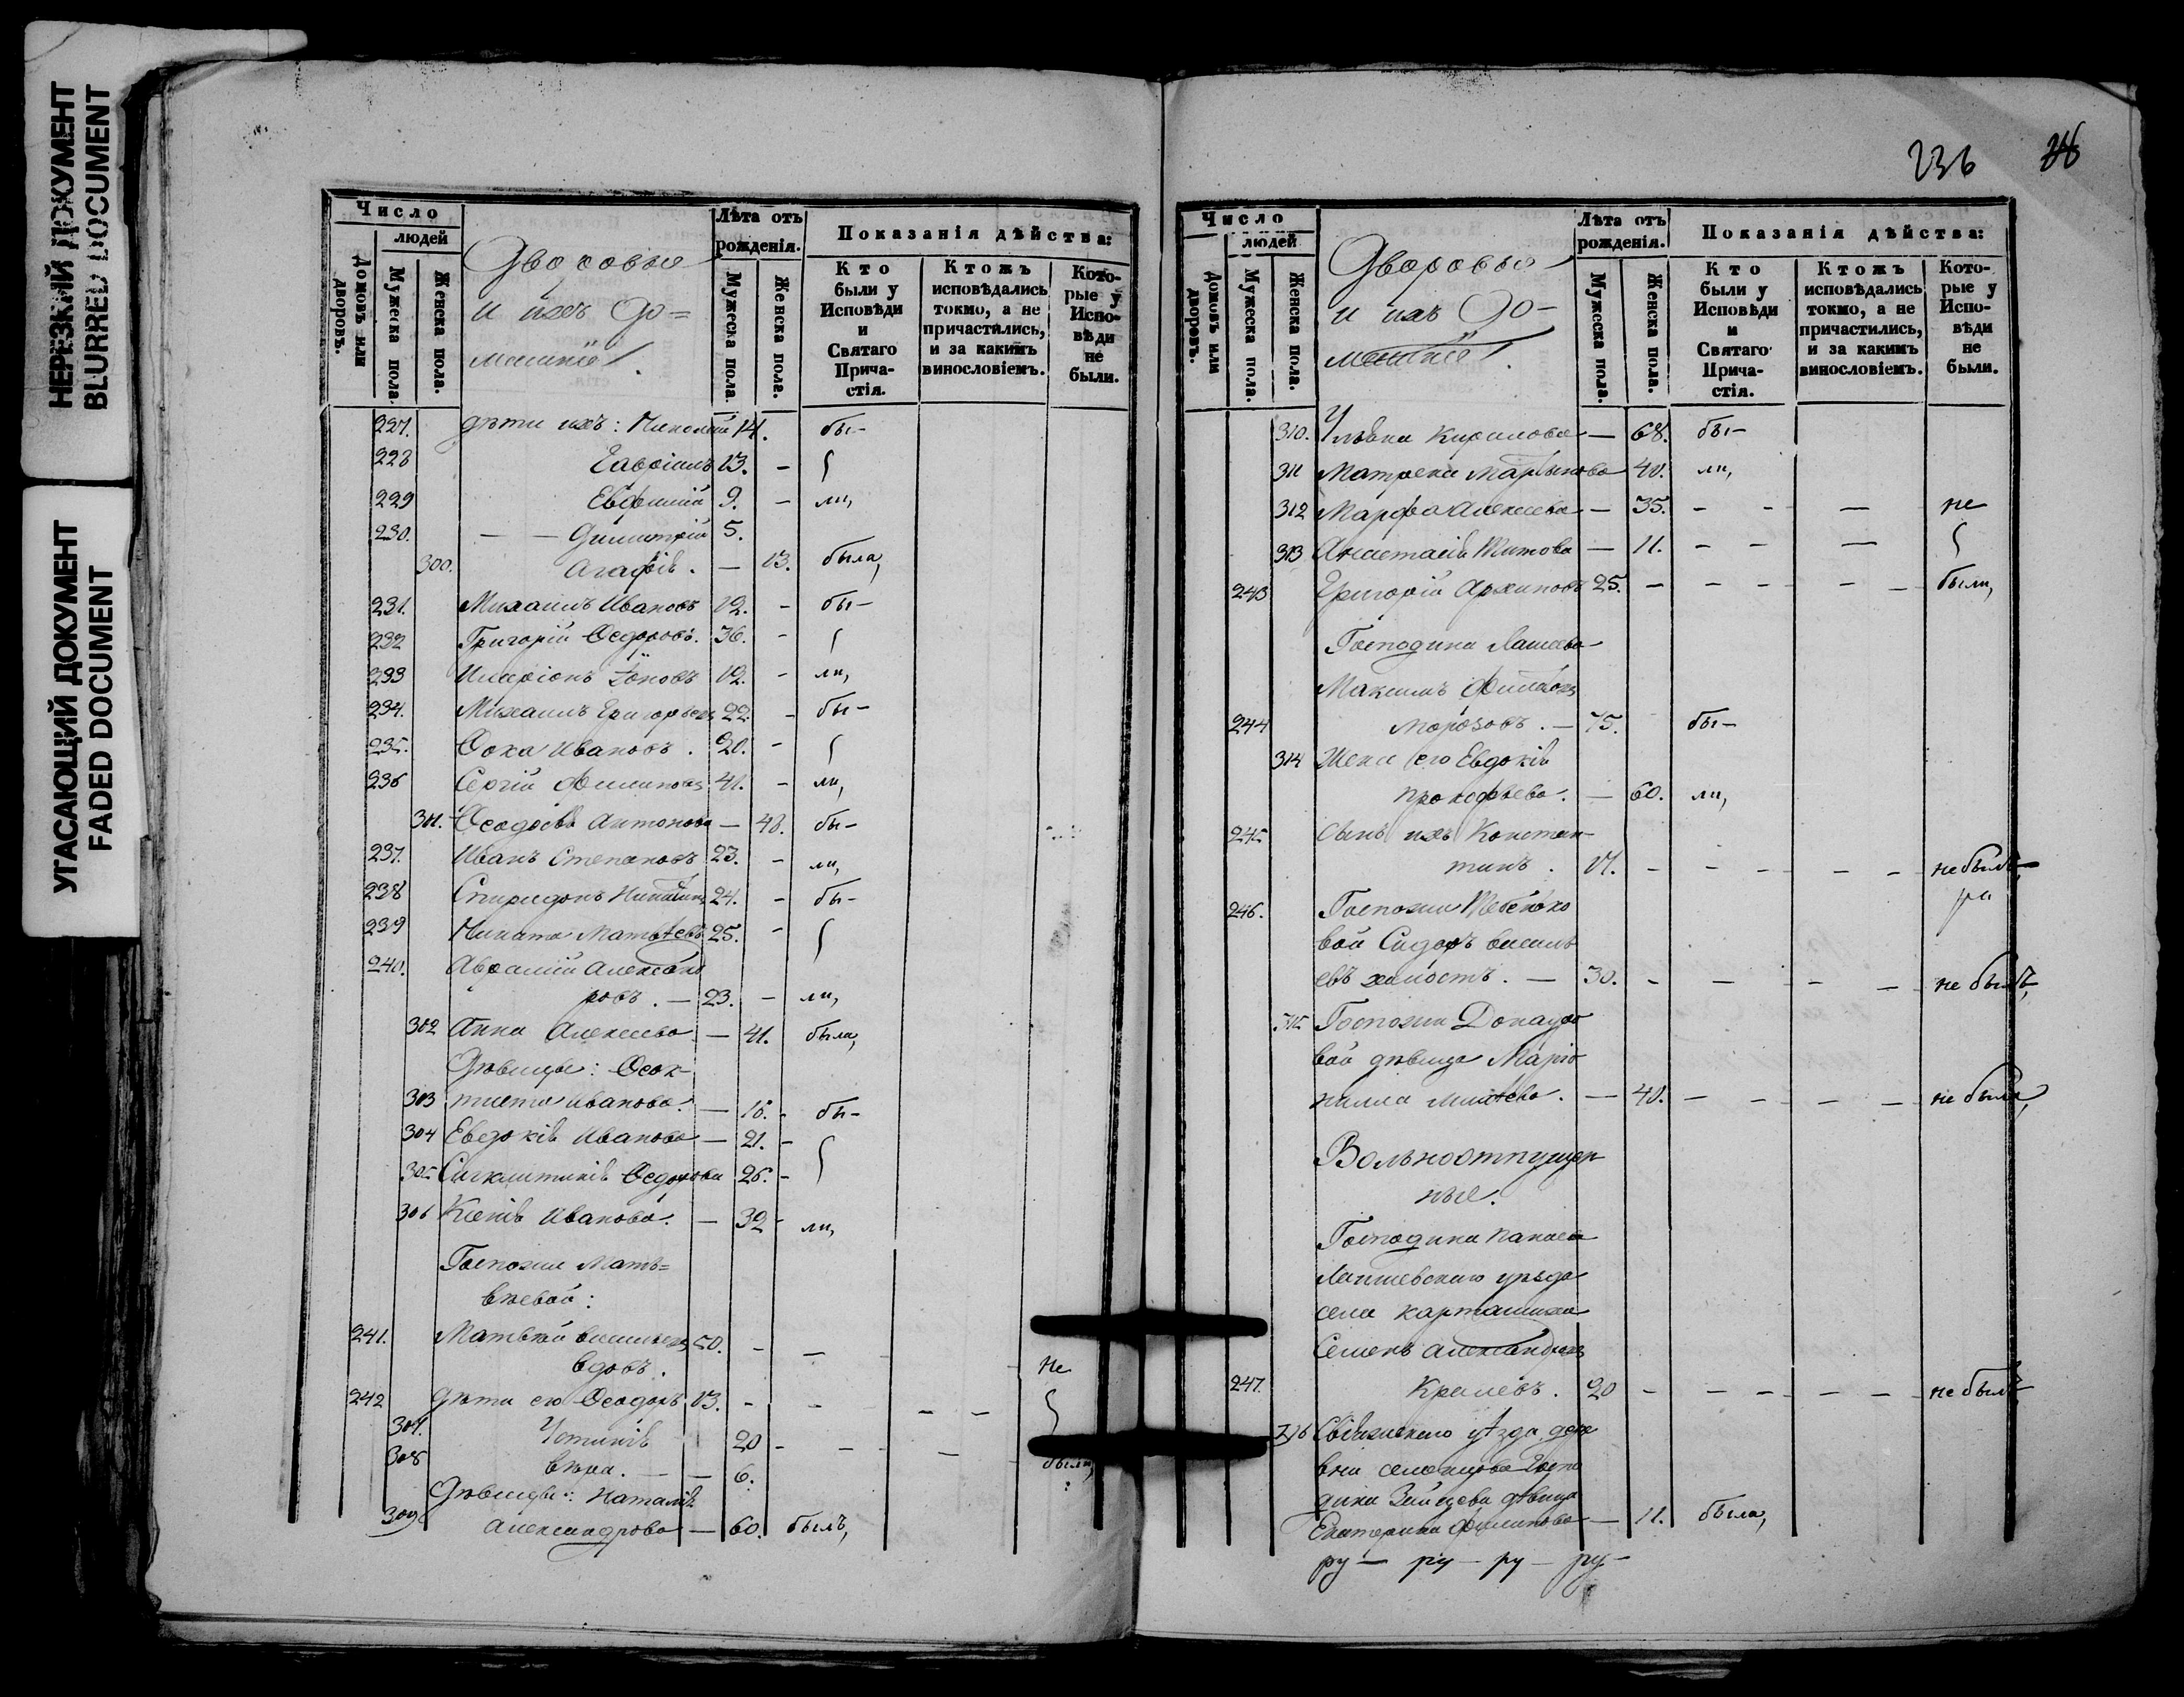 НЕРЕЗКИЙ ДОКУМЕНТ
BLURRED DOCUMENT
УГАСАЮЩИЙ ДОКУМЕНТ
FADED DOCUMENT
Число
людей
Домовъ или дворовъ.
Мужеска пола.
Женска пола.
Дворовые
и ихъ до=
машніе
Лѣта отъ рожденія.
Мужеска пола.
Женска пола.
Показанія дѣйства:
Кто были у Исповѣди и Святаго Прича-стія.
Ктожъ исповѣдались токмо, а не причастились, и за какимъ винословіемъ.
Кото-рые у Испо-вѣди не были.
227. дѣти ихъ: Николай 14. бы-
228 Гавріилъ 13. -
229 Евфимій 9. - ли,
230. — — Димитрій 5.
300. Агафія. — 13. была,
231. Михаилъ Ивановъ 12. - бы-
232 Григорій Ѳедоровъ. 36. -
233 Иларіонъ 12. - ли,
234. Михаилъ Григорьевъ 22. - бы-
235. Ѳока Ивановъ. 20. -
236 Сергій Филиповъ 41. - ли,
301. Ѳеодосія Антонова — 48. бы-
237. Иванъ Степановъ 23. - ли,
238 Спиридонъ Никитинъ 24. - бы-
239 Никита Матѳѣевъ 25. -
240. Авраамій Александ
ровъ. — 23. - ли,
302 Анна Алексеева — 41. была,
Дѣвицы: Ѳеок-
303 тиста Иванова. — 18. - бы-
304 Евдокія Иванова — 21. -
305 Синклитикія Ѳедорова 26. -
306 Ксенія Иванова. — 32 - ли,
Госпожи Матѳ=
вѣевой:
241. Матвѣй Васильевъ 50. - —
вдовъ. не
242 дѣти его Ѳеодоръ 13. - - — —
307. Устинія 20 - — —
308 вѣра. — — 6. были,
Дѣвицы: Наталія
309 Александрова — 60. былъ,
236
Число
людей
Домовъ или дворовъ.
Мужеска пола.
Женска пола.
Дворовые
и ихъ до-
машніе
Лѣта отъ рожденія.
Мужеска пола.
Женска пола.
Показанія дѣйства:
Кто были у Исповѣди и Святаго Прича-стія.
Ктожъ исповѣдались токмо, а не причастились, и за какимъ винословіемъ.
Кото-рые у Испо-вѣди не были.
310. Кирилова — 68. бы-
311 Матрена Мартынова 40. ли,
312 Марфа Алексеева — 35. - - — не
313 Анастасія Титова — 11. - - —
243 Григорій Архиповъ 25. - - - - — были,
Господина
Максимъ
244 Морозовъ. — 75. бы-
314 Жена его Евдокія
Прокофьева. — 60. ли,
245 сынъ ихъ Констан-
тинъ. 17. - - - - - не былъ,
246. Госпожи
вой Сидоръ Василь
евъ холостъ. — 30. - — - — не былъ,
315 Госпожи
вой дѣвица Маріо
нилла — 40. — - — — не была,
Вольноотпущен
ные.
Господина
Лаишевскаго уѣзда
села Карташихи
Семенъ Александровъ
247. 20 - - - - - не былъ
316 Свіяжскаго уѣзда дере
вни Госпо
дина Зайцева дѣвица
Екатерина Филипова — 11. была,
ру — ру — ру — ру —